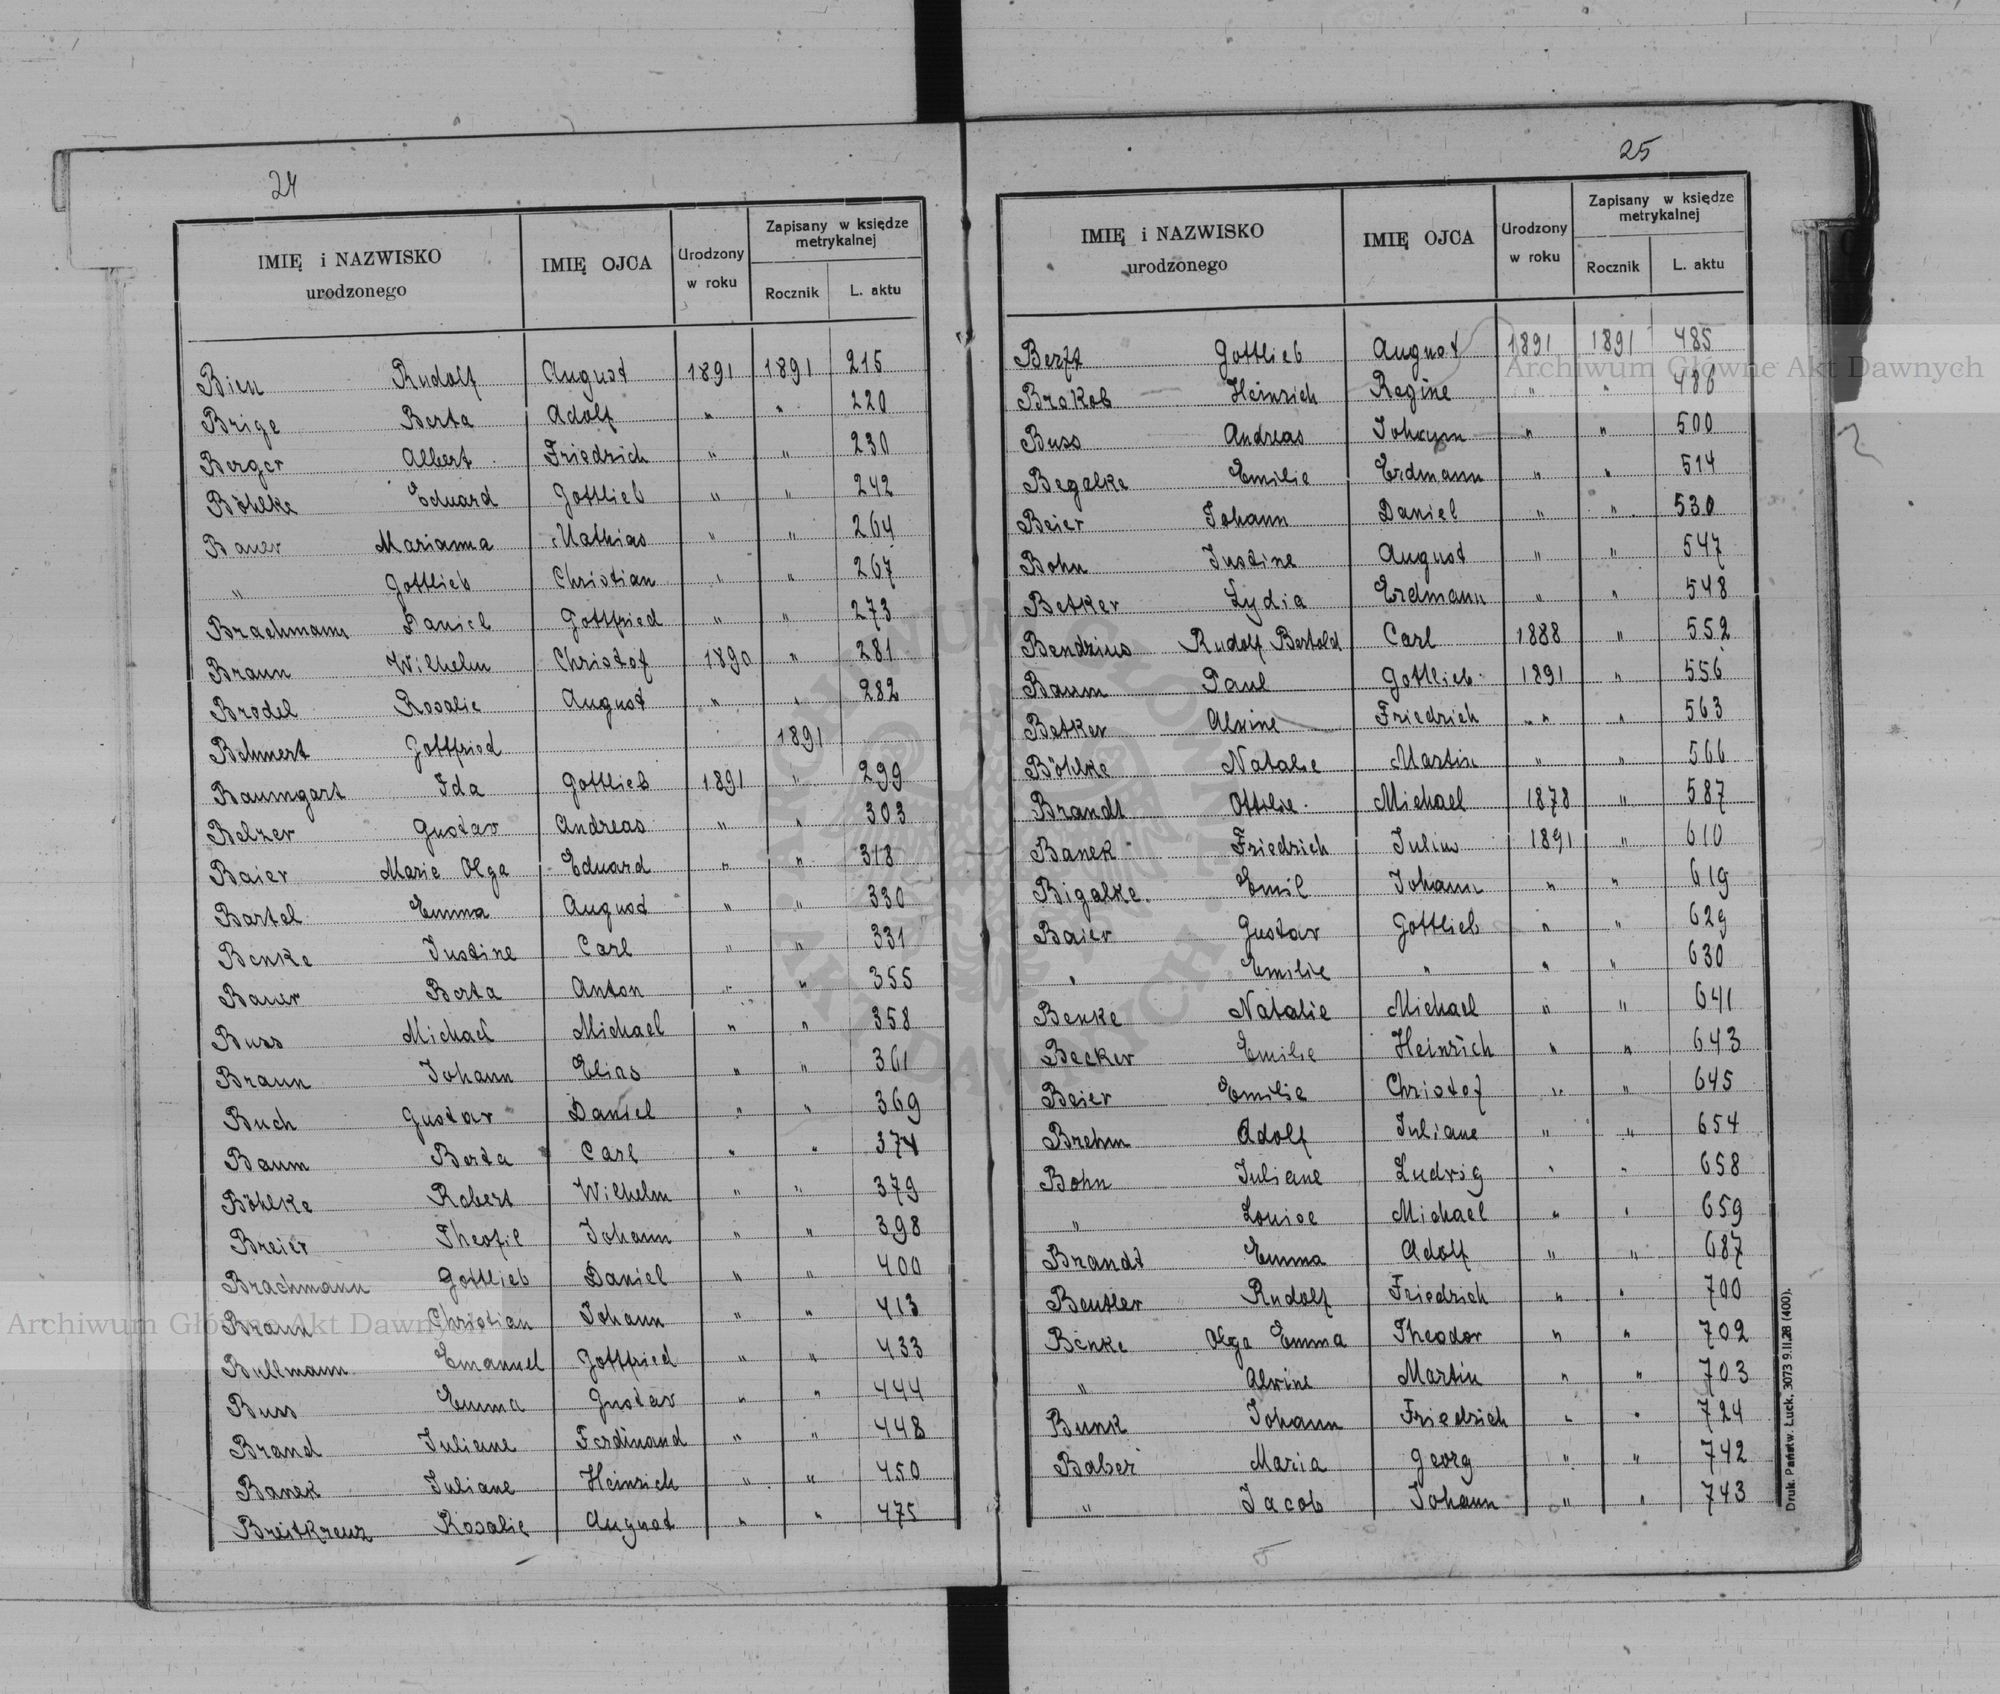 24
IMIĘ i NAZWISKO urodzonego IMIĘ OJCA Urodzony w roku Zapisany w księdze metrykalnej Rocznik L. aktu
Bien Rudolf August 1891 1891 215
Brige Berta Adolf " " 220
Berger Albert Friedrich " " 230
Böhlke Eduard Gottlieb " " 242
Bauer Marianna Mathias " " 264
" Gottlieb Christian " " 267
Brachmann Daniel Gottfried " " 273
Braun Wilhelm Christof 1890 " 281
Brodel Rosalie August " " 282
Behmert Gottfried 1891
Baumgart Ida Gottlieb 1891 " 299
Belzer Gustav Andreas " " 303
Baier Marie Olga Eduard " " 318
Bartel Emma August " " 330
Benke Justine Carl " " 331
Bauer Berta Anton " " 355
Buss Michael Michael " " 358
Braun Johann Elias " " 361
Buch Gustav Daniel " " 369
Baum Berta Carl " " 374
Böhlke Robert Wilhelm " " 379
Breier Theofil Johann " " 398
Brachmann Gottlieb Daniel " " 400
Braun Christian Johann " " 413
Bullmann Emanuel Gottfried " " 433
Buss Emma Gustav " " 444
Brand Juliane Ferdinand " " 448
Banek Juliane Heinrich " " 450
Breitkreuz Rosalie August " " 475
25
IMIĘ i NAZWISKO urodzonego IMIĘ OJCA Urodzony w roku Zapisany w księdze metrykalnej Rocznik L. aktu
Berft Gottlieb August 1891 1891 485
Brakob Heinrich Regine " " 486
Buss Andreas Johann " " 500
Begalke Emilie Erdmann " " 514
Beier Johann Daniel " " 530
Bohn Justine August " " 547
Betker Lydia Erdmann " " 548
Bendzius Rudolf Bertold Carl 1888 " 552
Baum Paul Gottlieb 1891 " 556
Betker Alvine Friedrich " " 563
Böhlke Natalie Martin " " 566
Brandt Ottilie Michael 1878 " 587
Banek Friedrich Julius 1891 " 610
Bigalke Emil Johann " " 619
Baier Gustav Gottlieb " " 629
" Emilie " " " 630
Benke Natalie Michael " " 641
Becker Emilie Heinrich " " 643
Beier Emilie Christof " " 645
Brehm Adolf Juliane " " 654
Bohn Juliane Ludvig " " 658
" Louise Michael " " 659
Brandt Emma Adolf " " 687
Beutler Rudolf Friedrich " " 700
Benke Olga Emma Theodor " " 702
" Alvine Martin " " 703
Bunk Johann Friedrich " " 724
Baber Maria Georg " " 742
" Jacob Johann " " 743
Druk. Państw. Łuck, 3073 9.II.28 (400).
Archiwum Główne Akt Dawnych
Archiwum Główne Akt Dawnych
ARCHIWUM GŁÓWNE AKT DAWNYCH